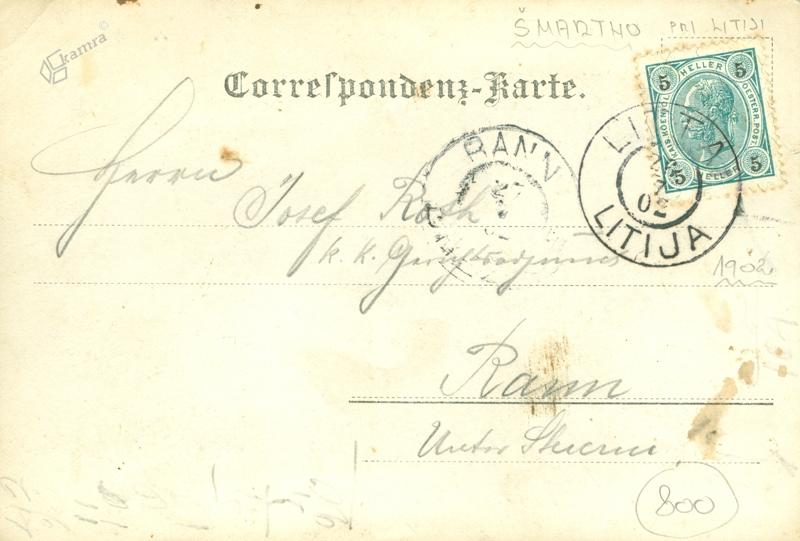 kamra ©
ŠMARTNO PRI LITIJI
Correspondenz-Karte.
5 HELLER 5
KAIS. KOENIGL. OESTERR. POST.
5 HELLER 5
LITIJA
02
LITIJA
RANN
Herrn
Josef Roth
k. k. Gerichtsadjunct
1902
Rann
Unter Steierm.
800